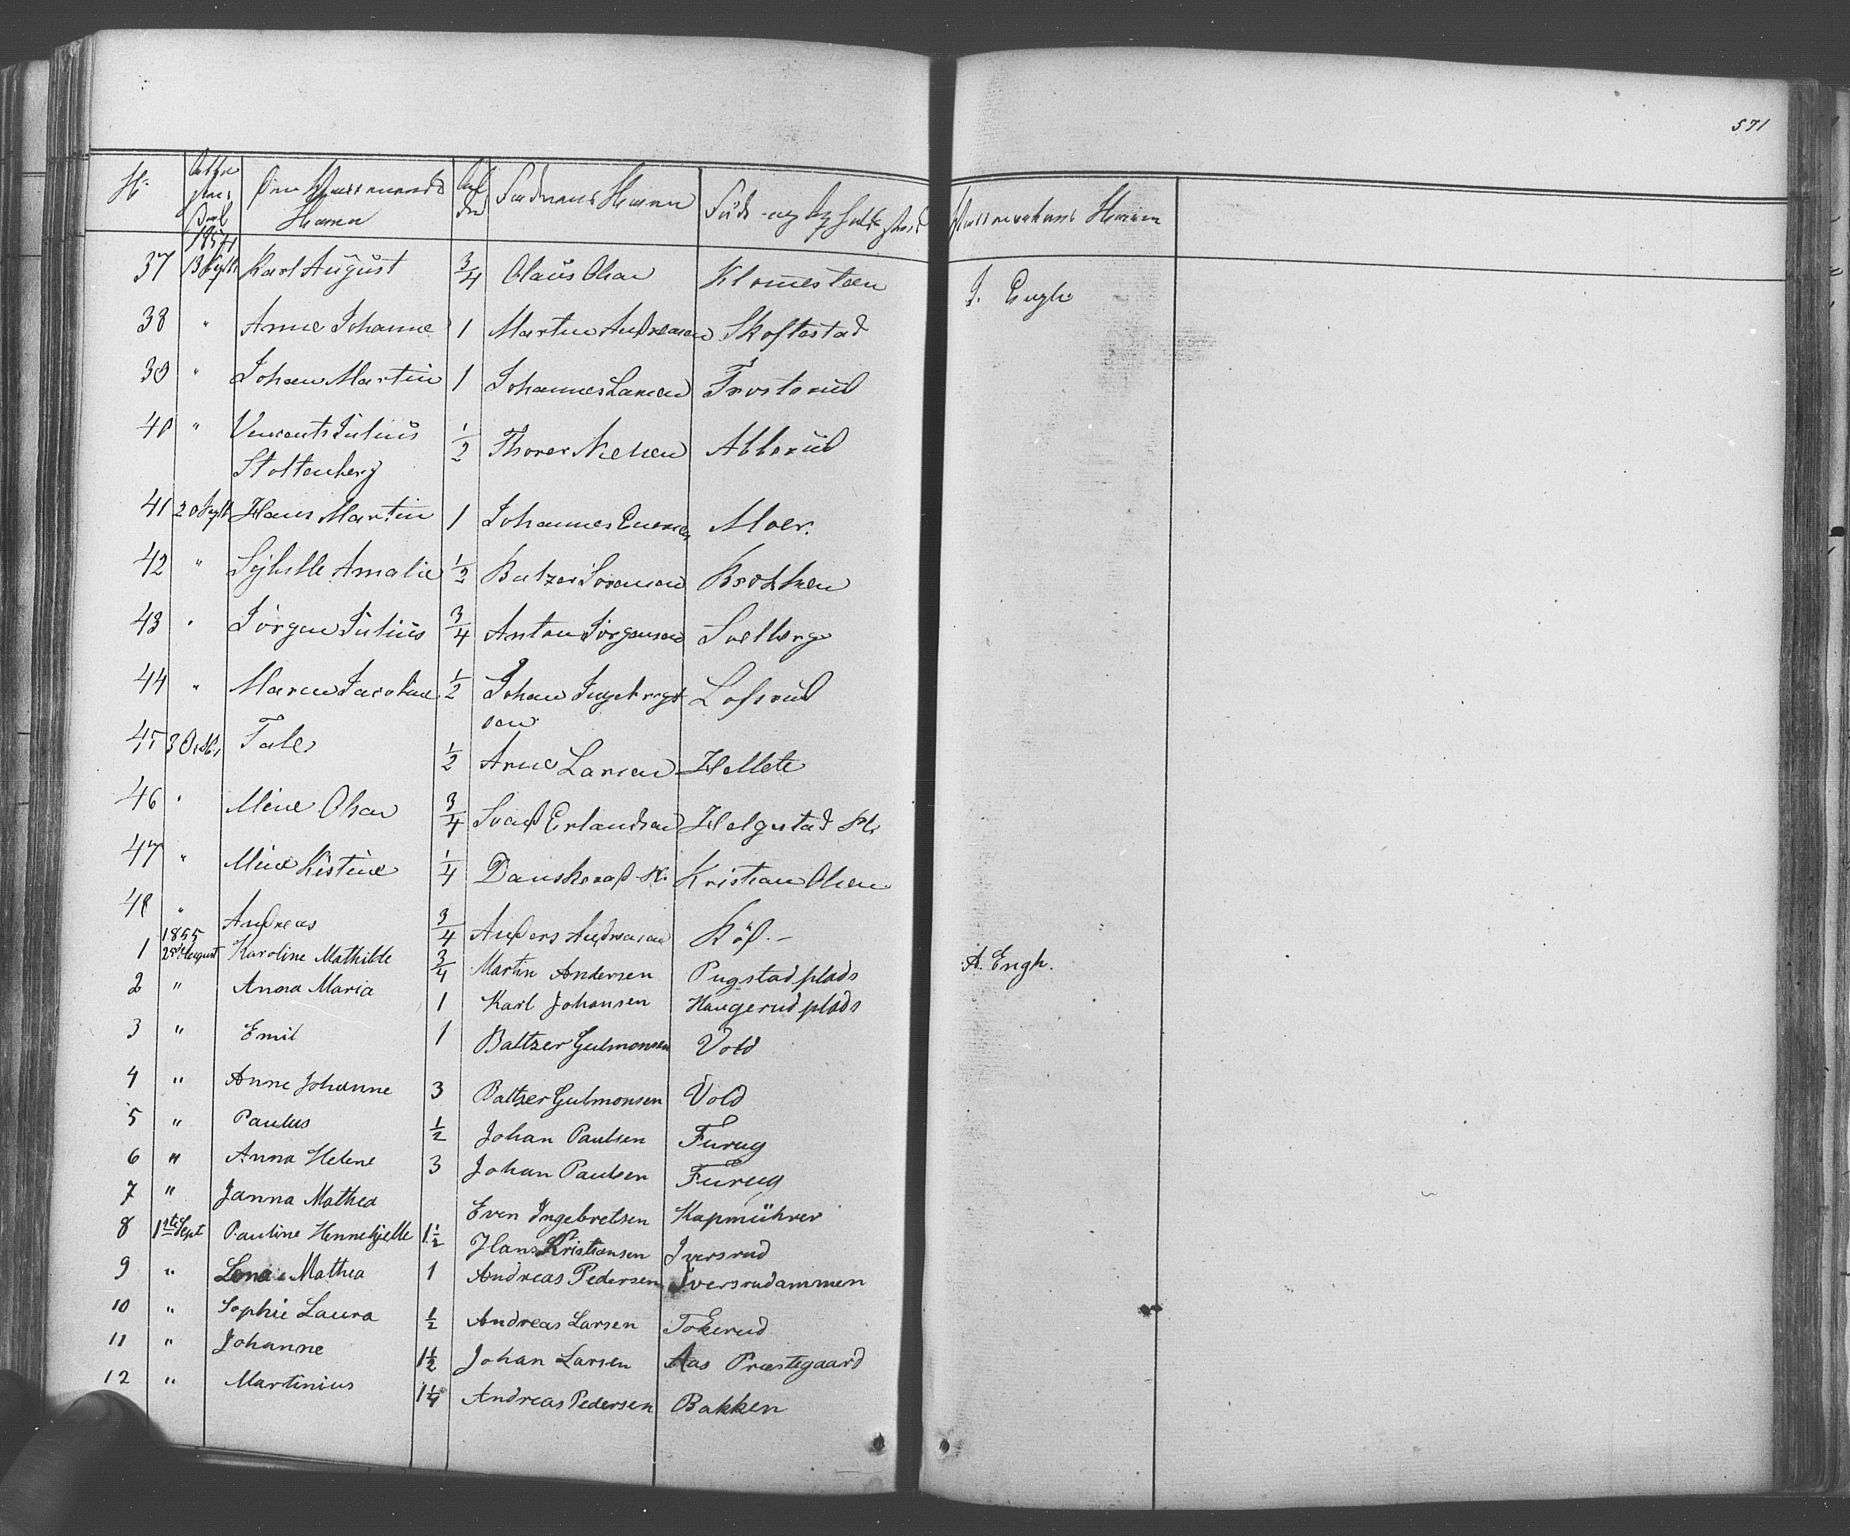 571
No
Den Vaccineredes Navn
Faderens Navn
Føde- og Opholdssted
Vaccinateurens Navn
1854
37 13 Septb Karl August 3/4 Olaus Olsen Klomesteen J. Engh
38 " Anne Johanne 1 Martin Andreasen Skoftestad
39 " Johan Martin 1 Johannes Larsen Frosterud
40 " Vincents Julius 1/2 Thorer Nielsen Ablerud
Stoltenberg
41 20 Septb Hans Martin 1 Johannes Evensen Moer.
42 " Sybille Amalie 1/2 Baltzer Sørensen Brekken
43 " Jørgen Julius 3/4 Anton Jørgensen Solberg
44 " Maren Jacobine 1/2 Johan Ingebrigt Lofsrud
sen
45 3 Octbr Tale 1/2 Arne Larsen Hellete
46 " Mine Olsen 3/4 Svend Erlandsen Helgestad
47 " Mine Kistine 1/4 Danskerud Kristian Olsen
48 " Andreas 3/4 Anders Andreasen
1855
1 25de August Karoline Mathilde 3/4 Martin Andersen Pugstad plads A. Engh.
2 " Anna Maria 1 Karl Johansen Haugerud plads
3 " Emil 1 Baltzer Gulmonsen Vold
4 " Anne Johanne 3 Baltzer Gulmonsen Vold
5 " Paulus 1/2 Johan Paulsen Furug
6 " Anna Helene 3 Johan Paulsen Furug
7 " Janna Mathea Even Ingebretsen Kapmührer
8 1ste Sept Pauline Hennekjelle 1 1/2 Hans Kristiansen Iversrud
9 " Lena Mathea 1 Andreas Pedersen Iversrudammen
10 " Sophie Laura 1/2 Andreas Larsen Tokerud
11 " Johanne 1 1/2 Johan Larsen Aas Præstegaard
12 " Martinius 1 1/4 Andreas Pedersen Bakken